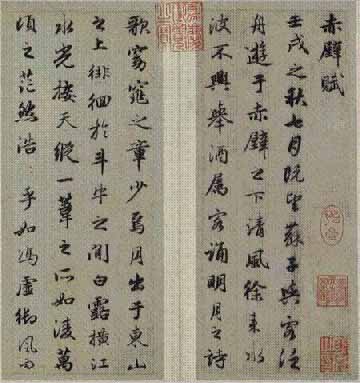 赤壁賦
壬戌之秋七月既望蘇子與客泛
舟遊于赤壁之下清風徐来水
波不興舉酒属客誦明月之詩
歌窈窕之章少焉月出于東山
之上徘徊於斗牛之間白露橫江
水光接天縱一葦之所如凌萬
頃之茫然浩乎如馮虛御風而